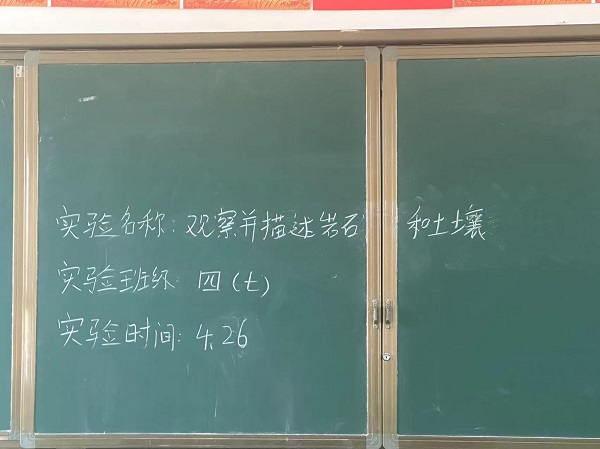 实验名称:观察并描述岩石和土壤
实验班级:四(七)
实验时间:4.26